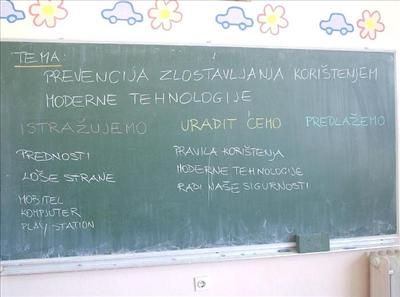 TEMA:
PREVENCIJA ZLOSTAVLJANJA KORIŠTENJEM
MODERNE TEHNOLOGIJE
ISTRAŽUJEMO
PREDNOSTI
LOŠE STRANE
MOBITEL
KOMPJUTER
PLAY STATION
URADIT ĆEMO
PRAVILA KORIŠTENJA
MODERNE TEHNOLOGIJE
RADI NAŠE SIGURNOSTI
PREDLAŽEMO